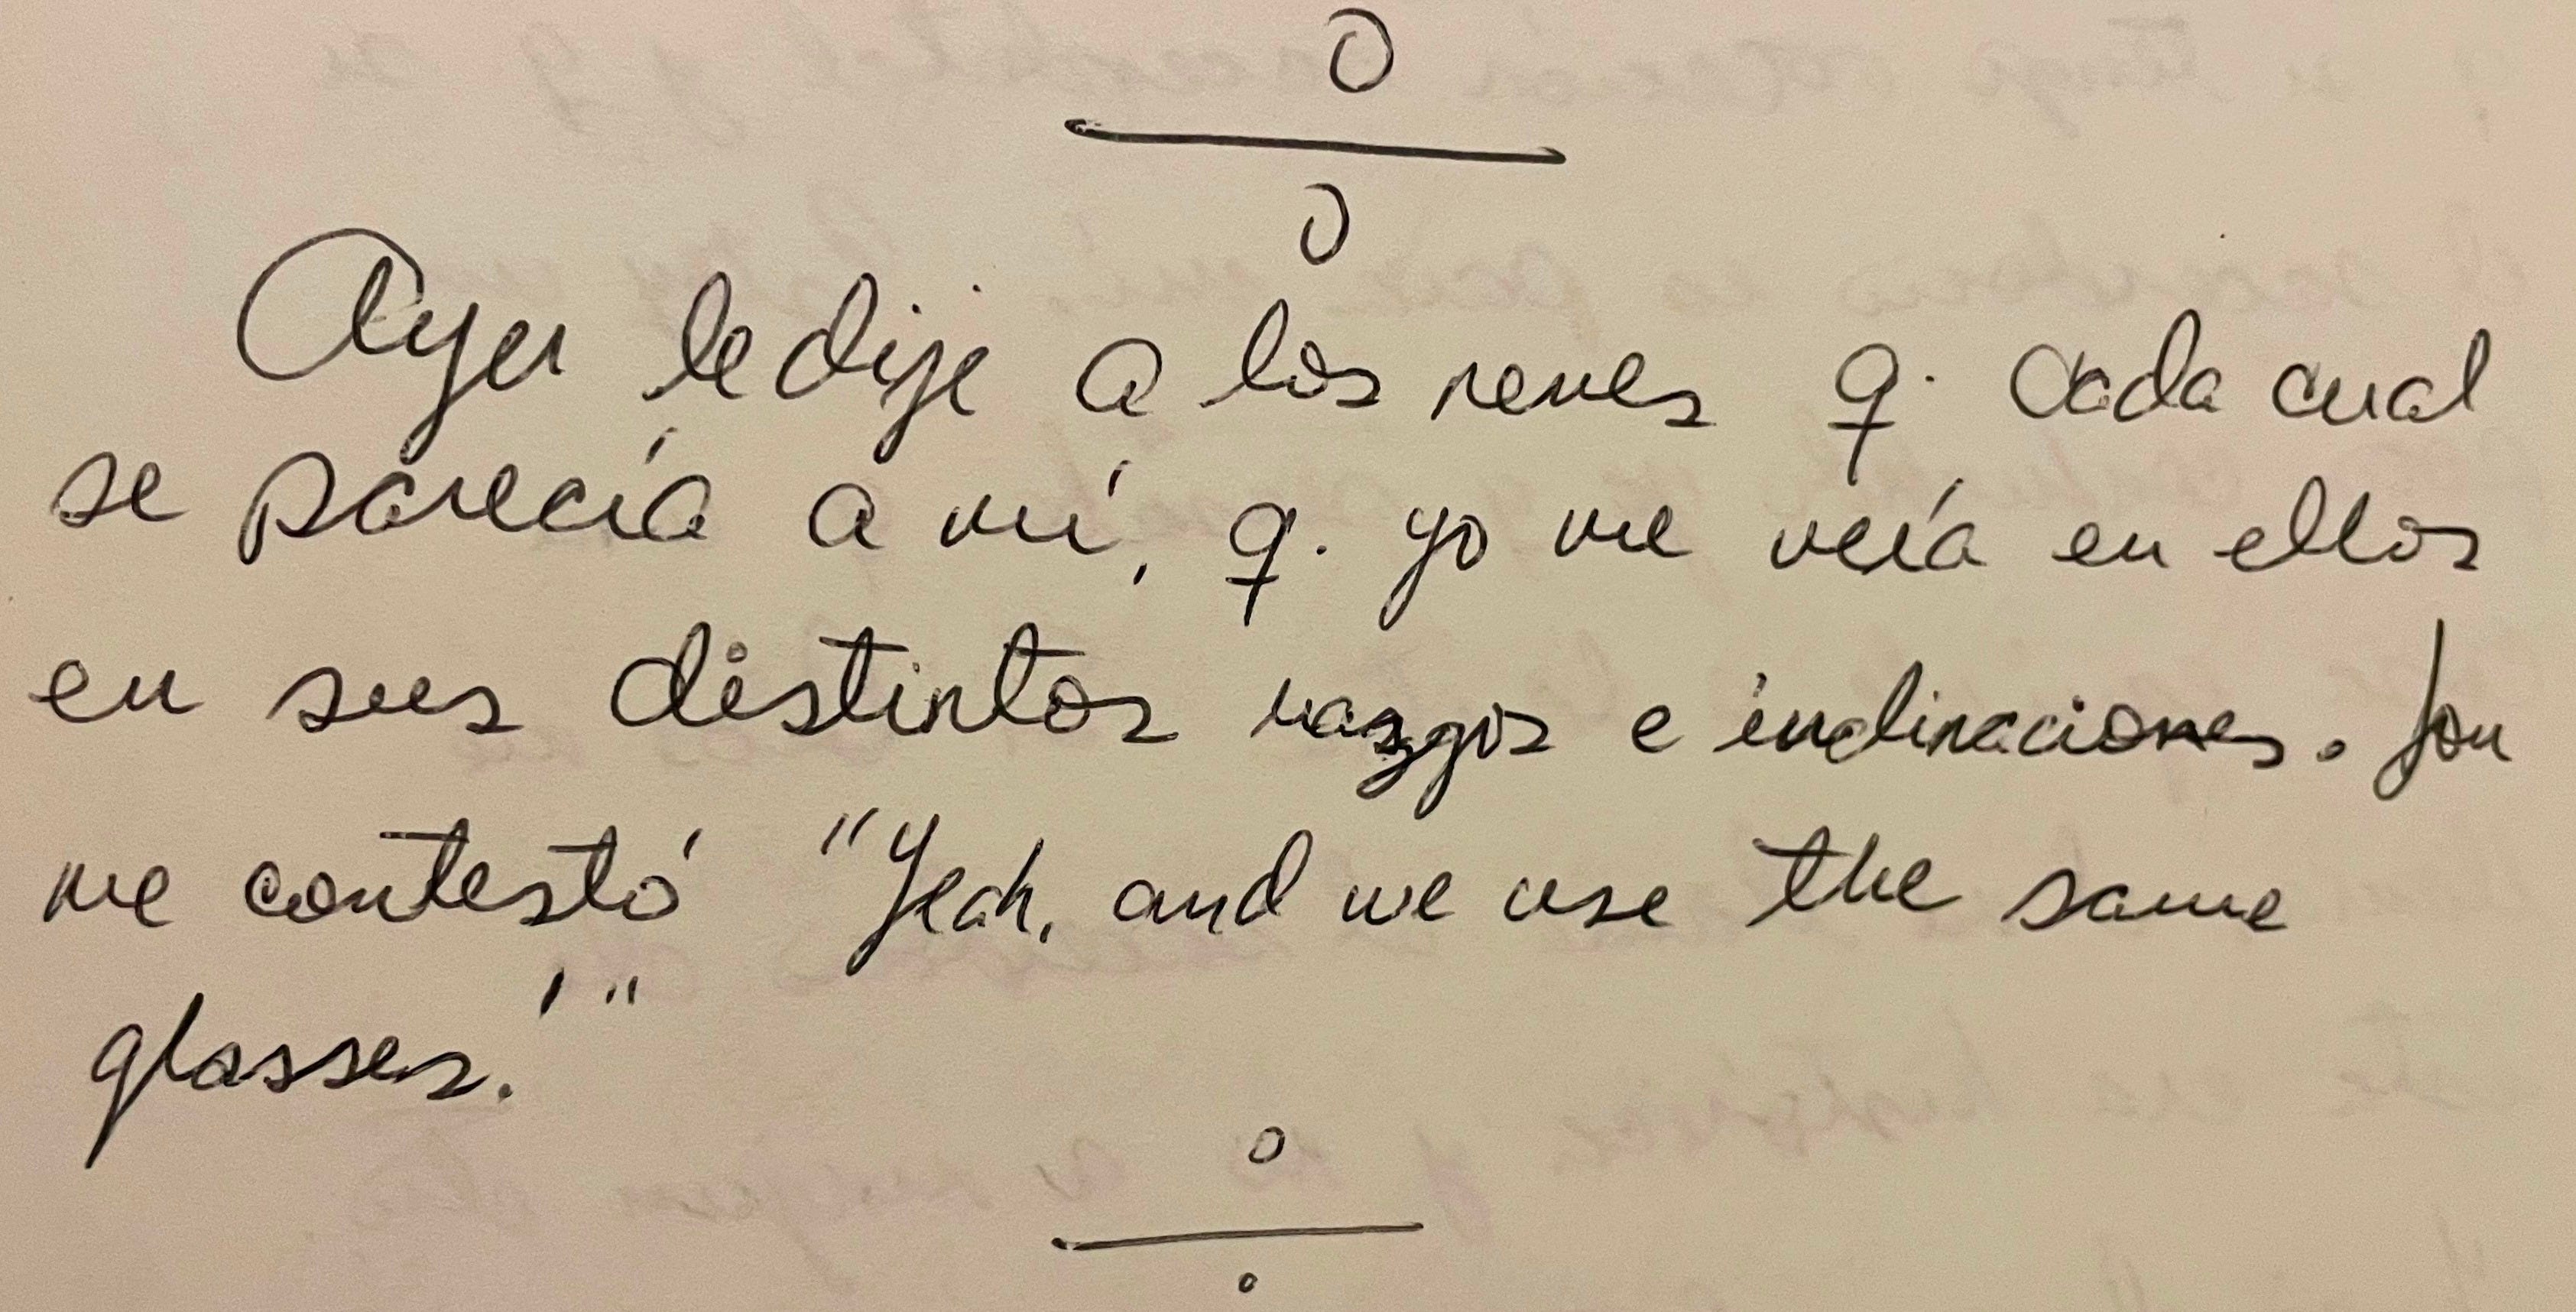 Ayer le dije a los nenes q. cada cual
se parecía a mí, q. yo me veía en ellos
en sus distintos razgos e inclinaciones. Jon
me contestó "Yeah, and we use the same
glasses."